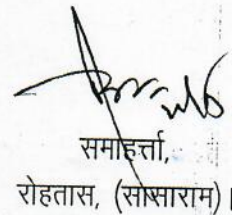 समाहर्त्ता,
रोहतास, (सासाराम)।